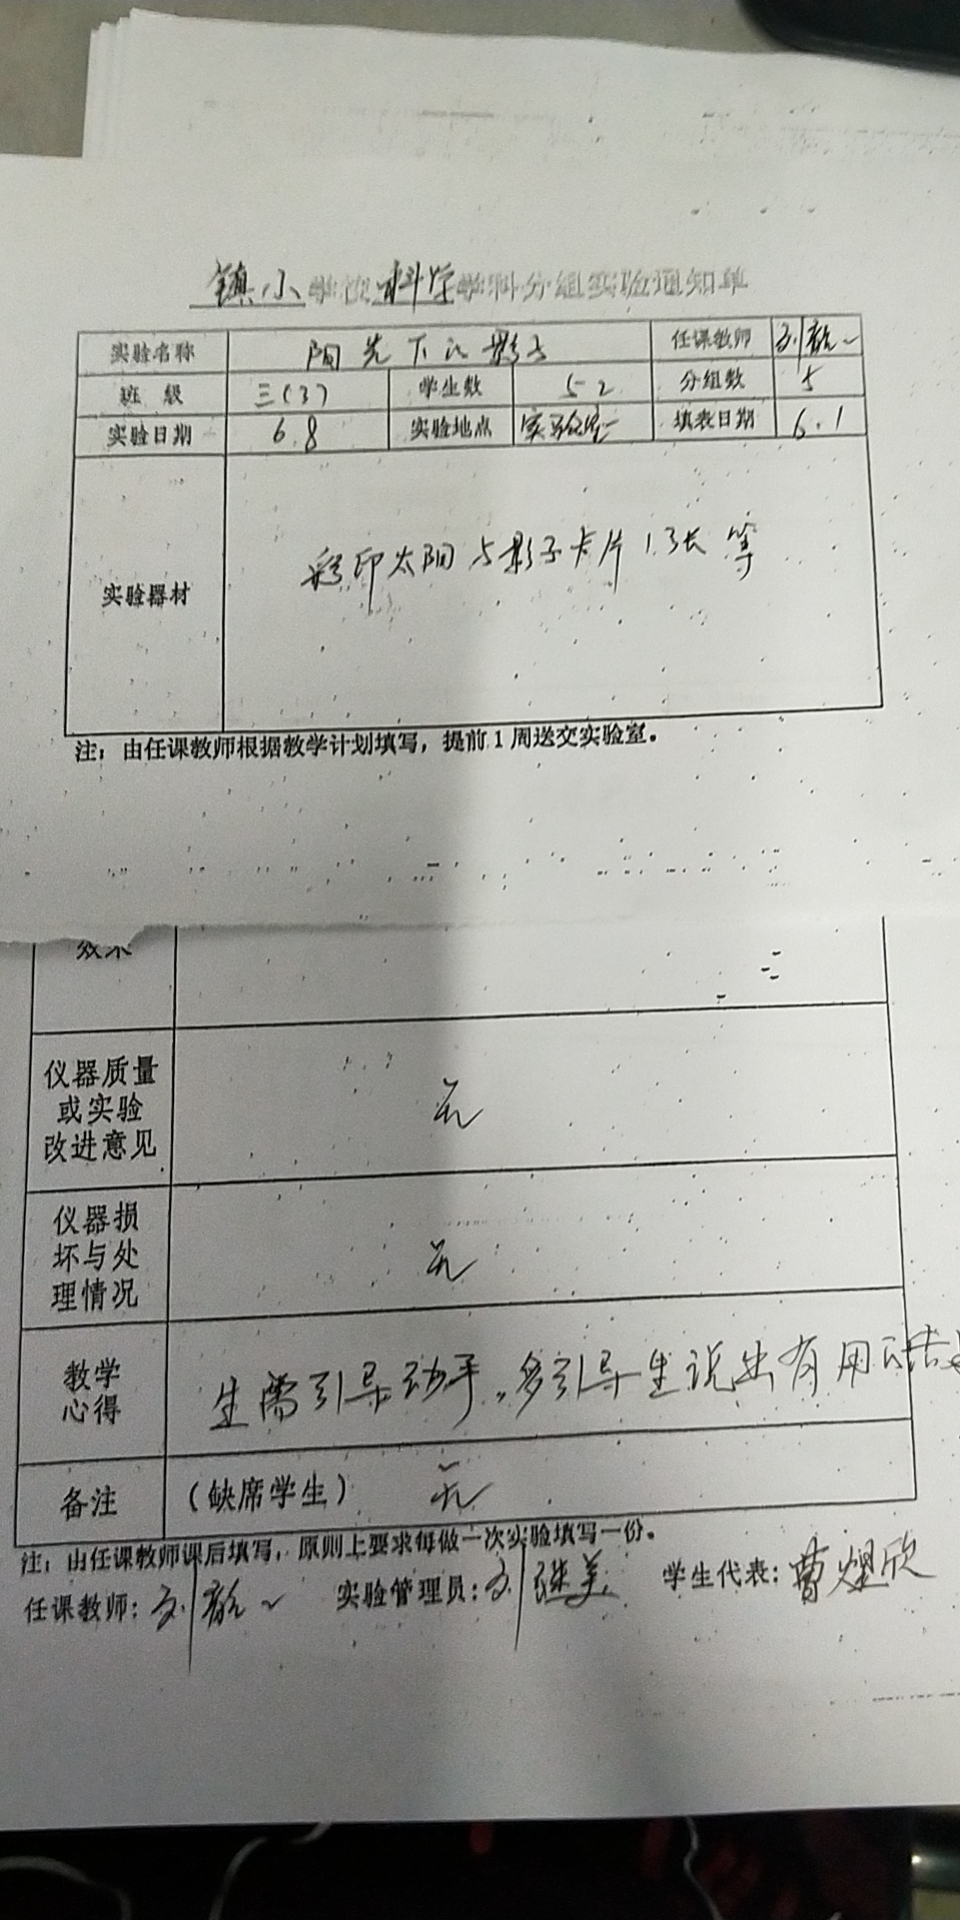 镇小学校科学学科分组实验通知单
实验名称 阳光下的影子 任课教师 刘
班 级 三(3) 学生数 52 分组数 5
实验日期 6.8 实验地点 实验室 填表日期 6.1
实验器材 彩印太阳与影子卡片 1.3长 等
注：由任课教师根据教学计划填写，提前1周送交实验室。
效果
仪器质量
或实验
改进意见 无
仪器损
坏与处
理情况 无
教学
心得 生需引导动手，多引导生说出有用的结
备注 (缺席学生) 无
注：由任课教师课后填写，原则上要求每做一次实验填写一份。
任课教师：刘 实验管理员：刘继美 学生代表：曹煜欣